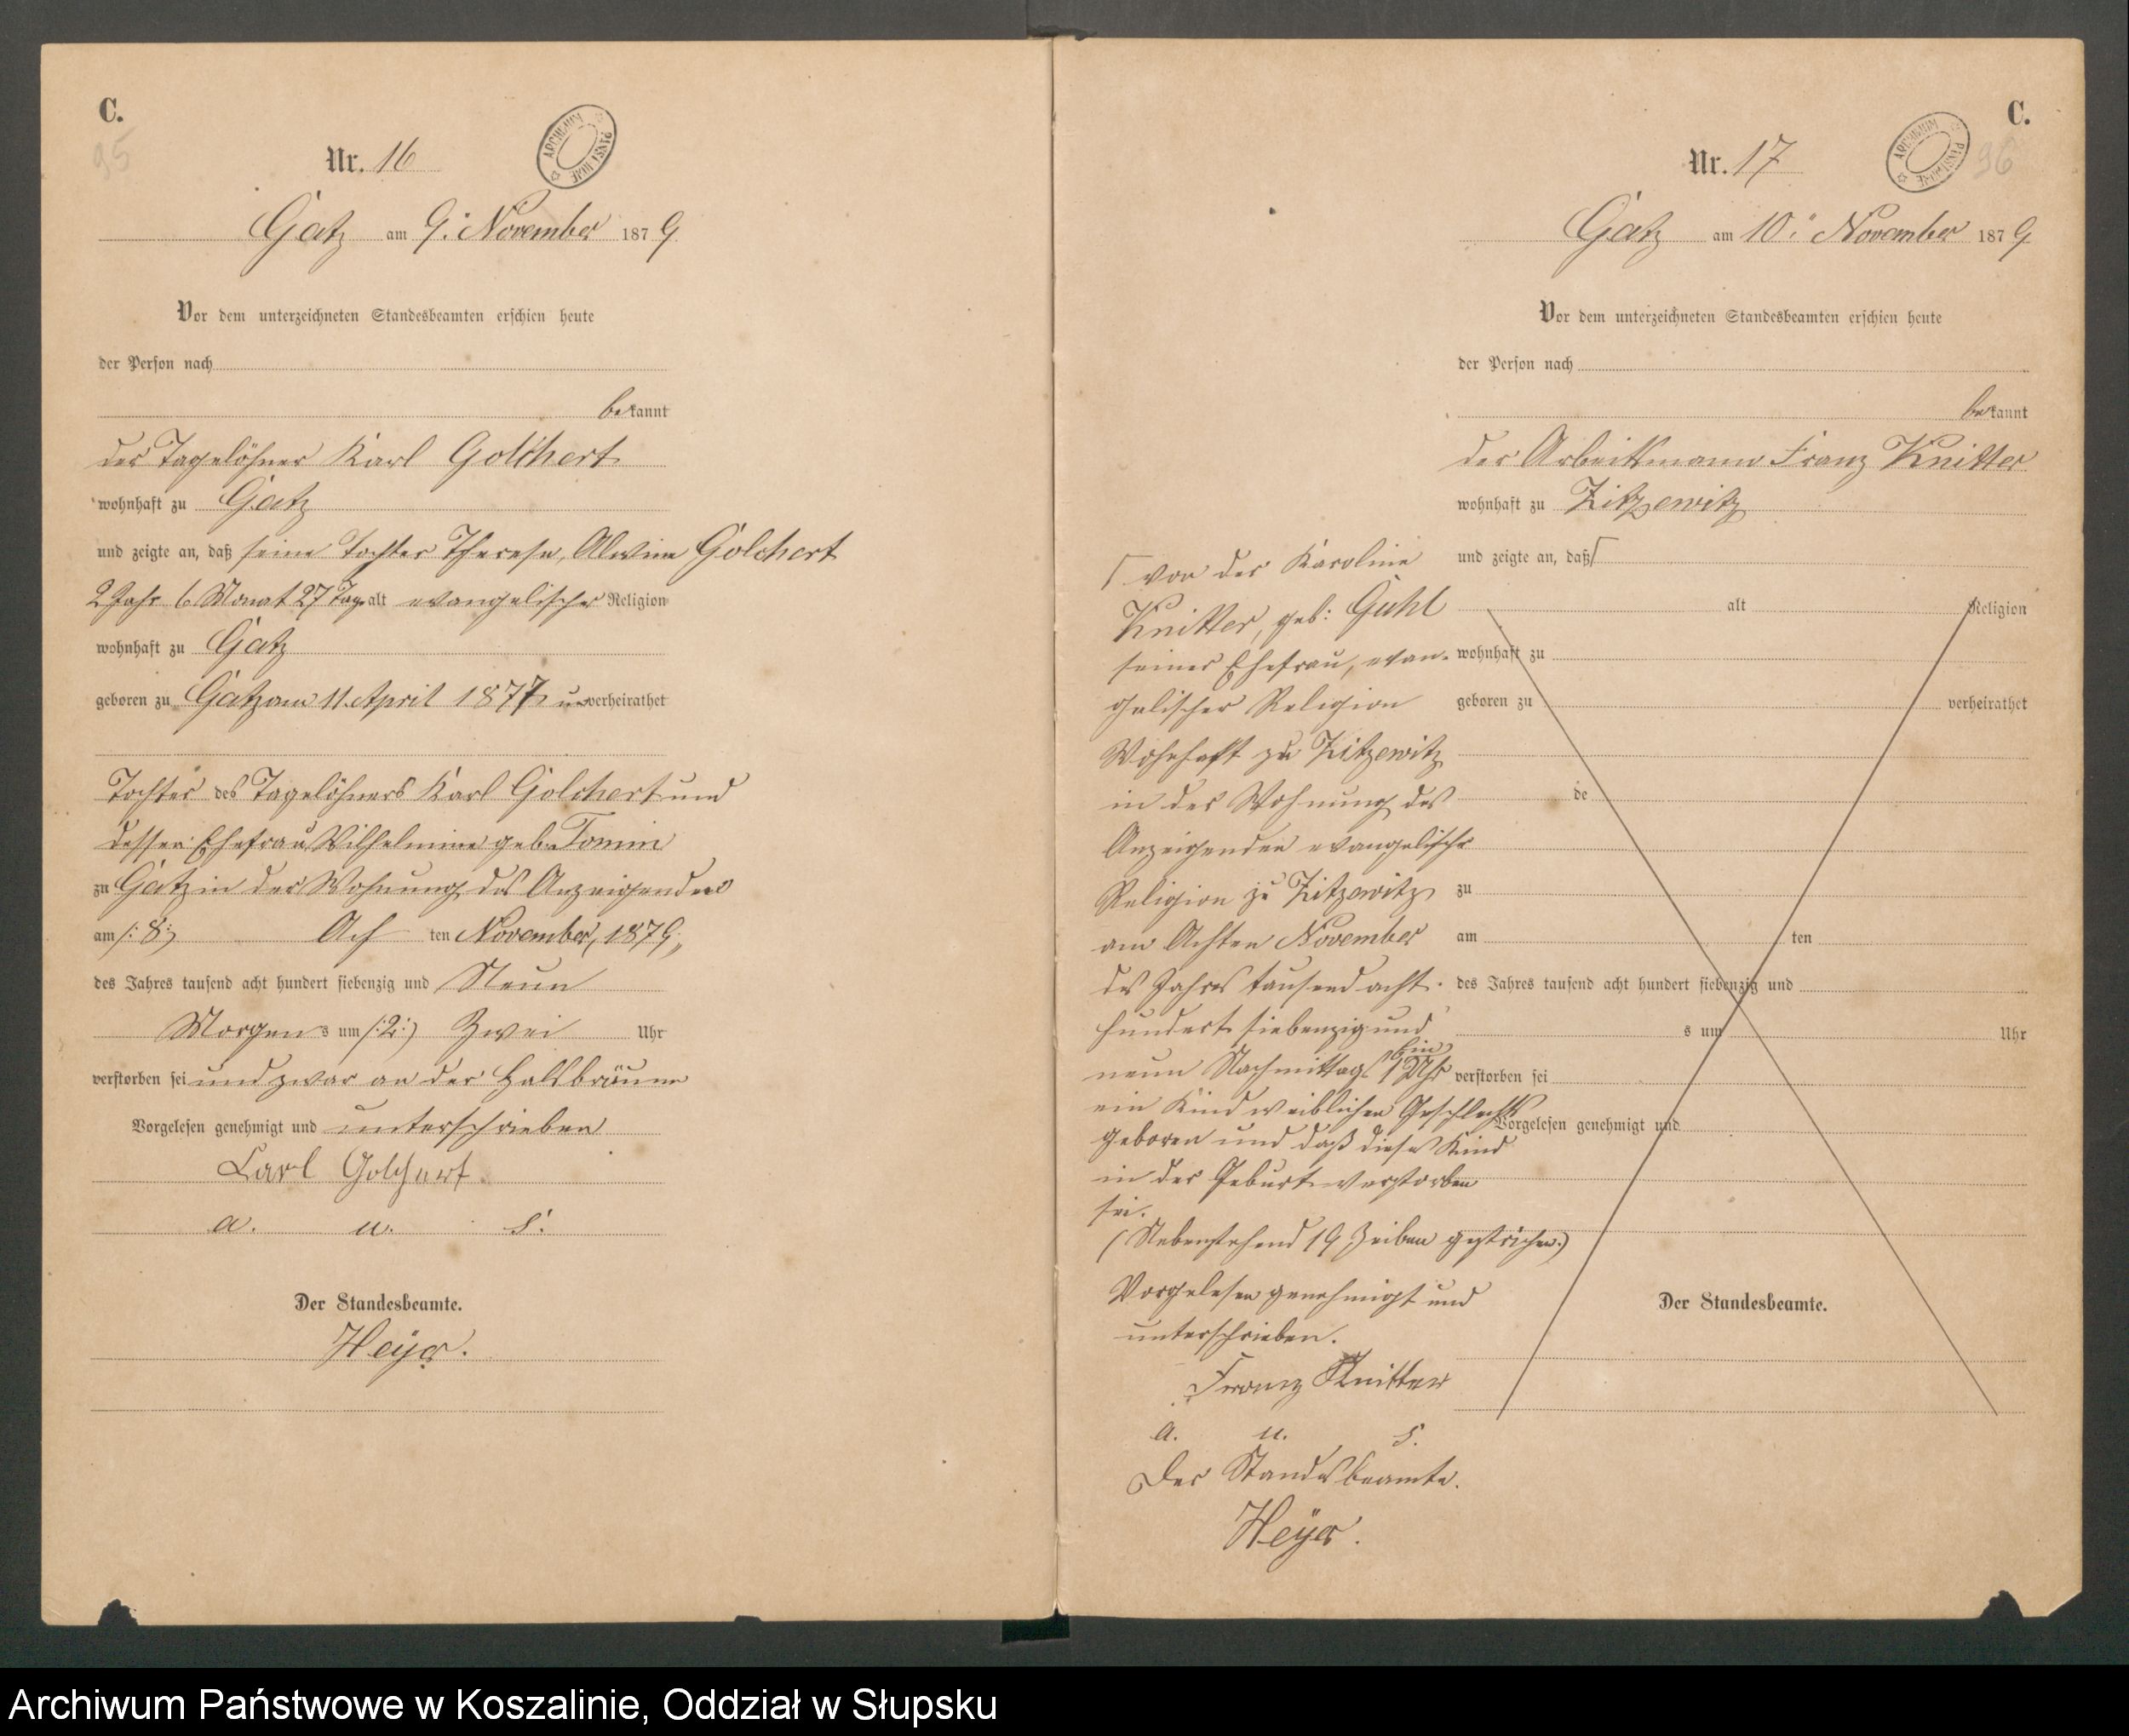 C.
95
Nr. 16
ARCHIWUM PAŃSTWOWE
Gatz am 9. November 1879
Vor dem unterzeichneten Standesbeamten erschien heute
der Person nach
bekannt
der Tagelöhner Karl Golchert
wohnhaft zu Gatz
und zeigte an, daß seine Tochter Therese, Alwine Golchert
2 Jahr 6 Monat 27 Tage alt evangelischer Religion
wohnhaft zu Gatz
geboren zu Gatz am 11. April 1877 unverheirathet
Tochter des Tagelöhners Karl Golchert und
dessen Ehefrau Wilhelmine geb. Tomm
zu Gatz in der Wohnung des Anzeigenden
am /:8:/ Ach ten November, 1879.
des Jahres tausend acht hundert siebenzig und Neun
Morgens um /:2:/ Zwei Uhr
verstorben sei und zwar an der Halsbräune
Vorgelesen genehmigt und unterschrieben
Carl Golchert
a. u. s.
Der Standesbeamte.
Heyer.
C.
96
Nr. 17
ARCHIWUM PAŃSTWOWE
Gatz am 10. November 1879
Vor dem unterzeichneten Standesbeamten erschien heute
der Person nach
bekannt
der Arbeitsmann Franz Knitter
wohnhaft zu Zitzewitz
und zeigte an, daß Γ
alt Religion
wohnhaft zu
geboren zu verheirathet
de
zu
am ten
des Jahres tausend acht hundert siebenzig und
s um Uhr
verstorben sei
Vorgelesen genehmigt und
Der Standesbeamte.
Γ von der Karoline
Knitter, geb: Guhl
seiner Ehefrau, evan-
gelischer Religion
Wohnhaft zu Zitzewitz
in der Wohnung des
Anzeigenden evangelischer
Religion zu Zitzewitz
am Achten November
des Jahres tausend acht
hundert siebenzig und
neun Nachmittags 1 Ein Uhr
ein Kind weiblichen Geschlechts
geboren und daß dieses Kind
in der Geburt verstorben
sei.
(Nebenstehend 19 Zeilen gestrichen.)
Vorgelesen genehmigt und
unterschrieben.
Franz Knitter
a. u. s.
Der Standesbeamte.
Heyer.
Archiwum Państwowe w Koszalinie, Oddział w Słupsku